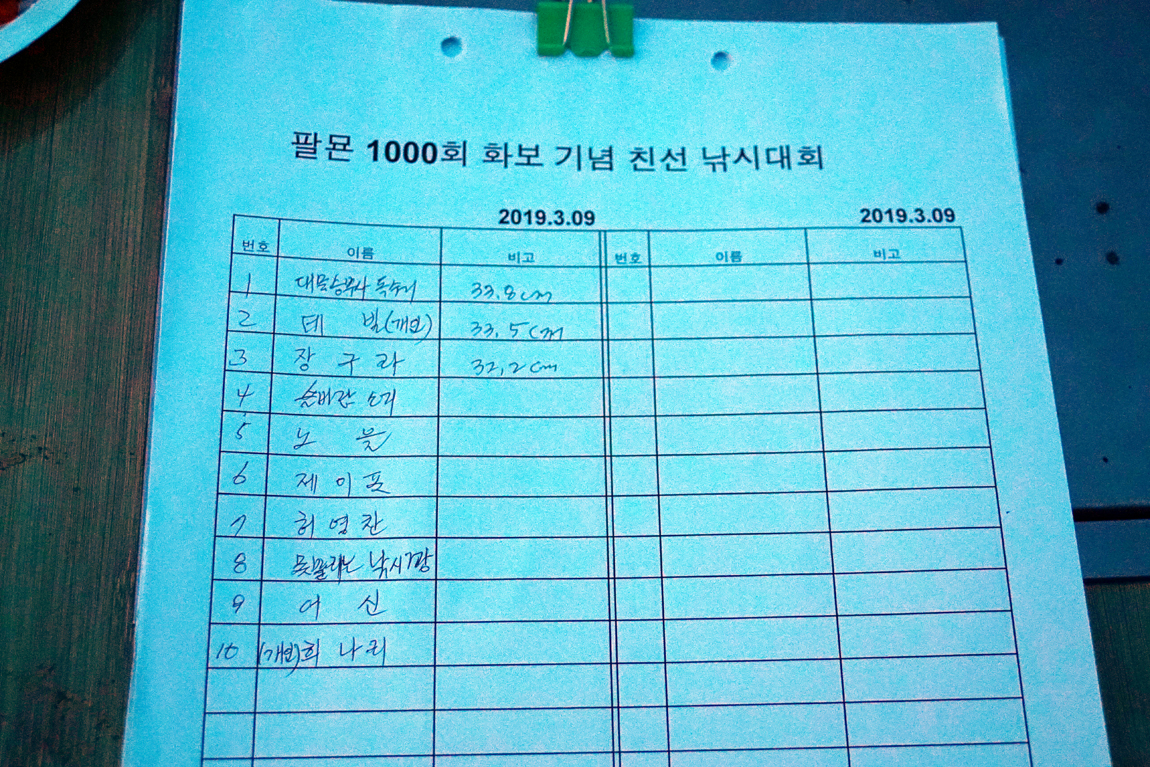 팔몬 1000회 화보 기념 친선 낚시대회
2019.3.09 2019.3.09
번호 이름 비고 번호 이름 비고
1 대물승부사 독수리 33.8cm
2 데 빌(개인) 33.5cm
3 장 구 라 32.2cm
4 솔바람 소리
5 노 블
6 제 이 프
7 허 영 찬
8 낚시깡
9 어 신
10 (개인)희 나 리